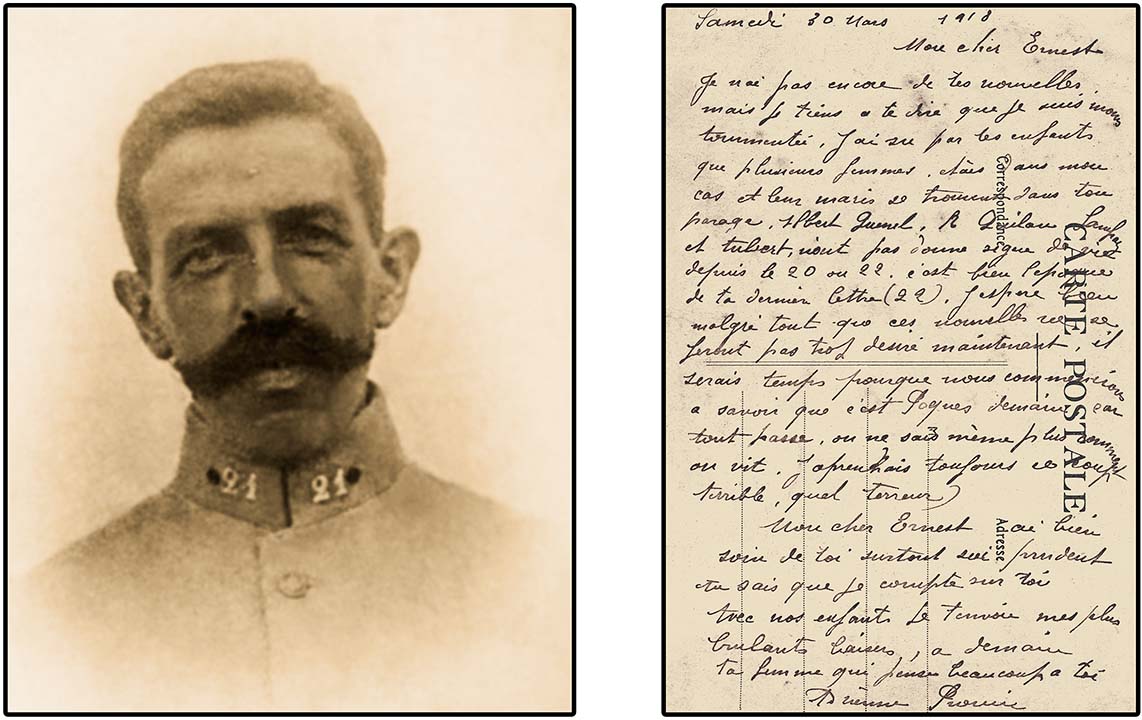 21 21
Samedi 30 Mars 1918
Mon cher Ernest
Je n'ai pas encore de tes nouvelles,
mais je tiens a te dire que je suis moins
tourmentée, J'ai su par les enfants
que plusieurs femmes, étais dans mon
cas et leur maris se trouvent dans ton
parage, Albert R
et n'ont pas donné signe de
depuis le 20 ou 22. c'est bien l'epoque
de ta dernière lettre (22). J'espere bien
malgré tout que ces nouvelles ne se
feront pas trop désiré maintenant, il
serais temps pourque nous commencions
a savoir que c'est Paques demain, car
tout passe, on ne sais même plus comment
on vit. toujours ce coup
terrible, quel terreur)
Mon cher Ernest ai bien
soin de toi surtout soi prudent
tu sais que je compte sur toi
avec nos enfants Je t'envoie mes plus
brulants baisers, a demain
ta femme qui pense beaucoup a toi
Correspondance
CARTE POSTALE
Adresse